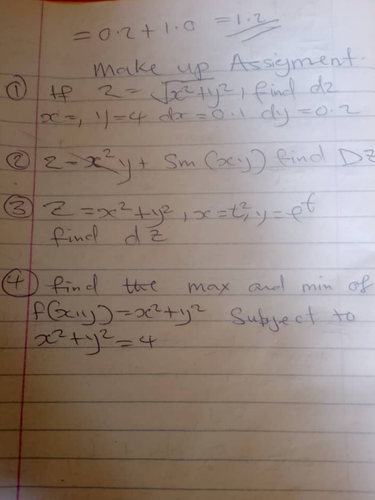 = 0.2 + 1.0 = 1.2
Make up Assigment.
① If Z = √x²+y², find dz
x=, y=4 dx=0.1 dy=0.2
② Z = x²y + Sin(xy) find Dz
③ Z = x²+y², x=t², y=e^t
find dz
④ find the max and min of
f(x,y)=x²+y² Subject to
x²+y²=4